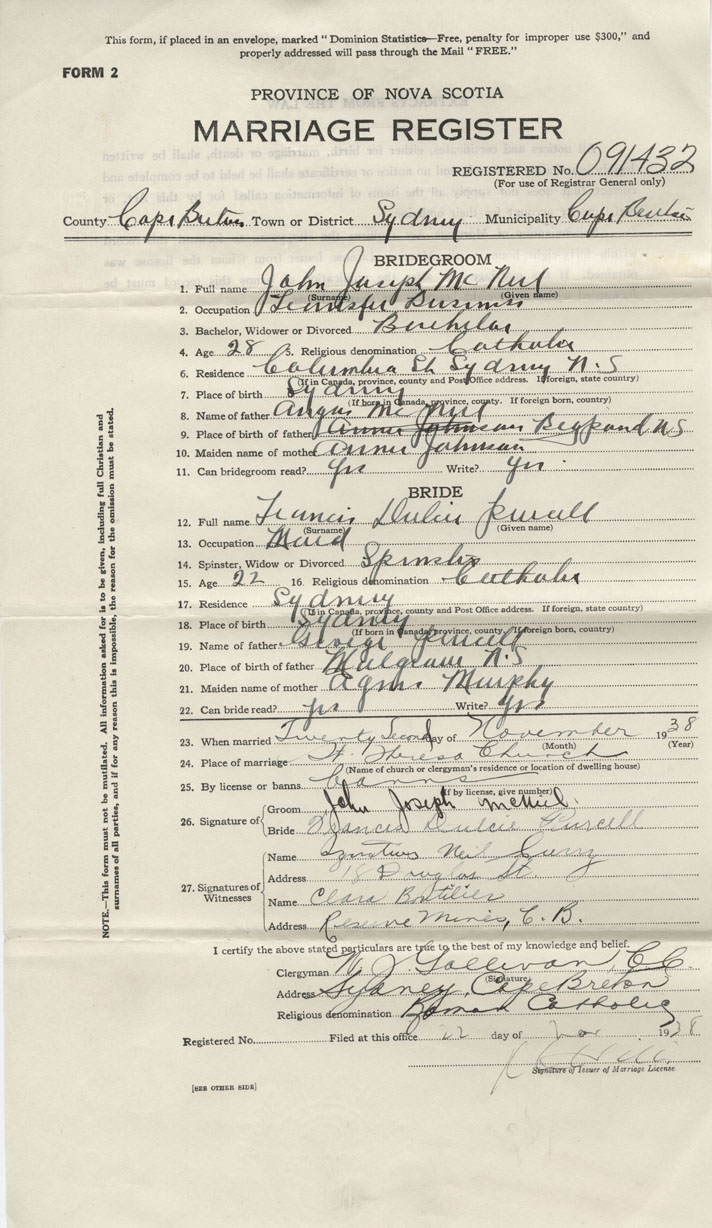 This form, if placed in an envelope, marked "Dominion Statistics—Free, penalty for improper use $300," and
properly addressed will pass through the Mail "FREE."
FORM 2
PROVINCE OF NOVA SCOTIA
MARRIAGE REGISTER
REGISTERED No. 091432
(For use of Registrar General only)
County Cape Breton Town or District Sydney Municipality Cape Breton
BRIDEGROOM
1. Full name John Joseph McNeil
(Surname) (Given name)
2. Occupation Transfer Business
3. Bachelor, Widower or Divorced Bachelor
4. Age 28 5. Religious denomination Catholic
6. Residence Columbia St Sydney N.S
(If in Canada, province, county and Post Office address. If foreign, state country)
7. Place of birth Sydney
(If born in Canada, province, county. If foreign born, country)
8. Name of father Angus McNeil
9. Place of birth of father Annie Johnson N S
10. Maiden name of mother Annie Johnson
11. Can bridegroom read? Yes Write? Yes
BRIDE
12. Full name Francis Dulcie Purcell
(Surname) (Given name)
13. Occupation Maid
14. Spinster, Widow or Divorced Spinster
15. Age 22 16. Religious denomination Catholic
17. Residence Sydney
(If in Canada, province, county and Post Office address. If foreign, state country)
18. Place of birth Sydney
(If born in Canada, province, county. If foreign born, country)
19. Name of father George Purcell
20. Place of birth of father Mulgrave N.S
21. Maiden name of mother Agnes Murphy
22. Can bride read? Yes Write? Yes
23. When married Twenty Second day of November 1938
(Month) (Year)
24. Place of marriage St. Theresa Church
(Name of church or clergyman's residence or location of dwelling house)
25. By license or banns Banns
(If by license, give number)
26. Signature of Groom John Joseph McNeil.
Bride Francis Dulcie Purcell
27. Signatures of Witnesses
Name Ignatius Neil Curry
Address 18 Douglas St.
Name Clara Boutilier
Address Reserve Mines, C.B.
I certify the above stated particulars are true to the best of my knowledge and belief.
Clergyman W. J. Gallivan, C.C.
(Signature)
Address Sydney, Cape Breton
Religious denomination Roman Catholic
Registered No. Filed at this office 22 day of Nov 1938
Signature of Issuer of Marriage License
[SEE OTHER SIDE]
NOTE.—This form must not be mutilated. All information asked for is to be given, including full Christian and
surnames of all parties, and if for any reason this is impossible, the reason for the omission must be stated.